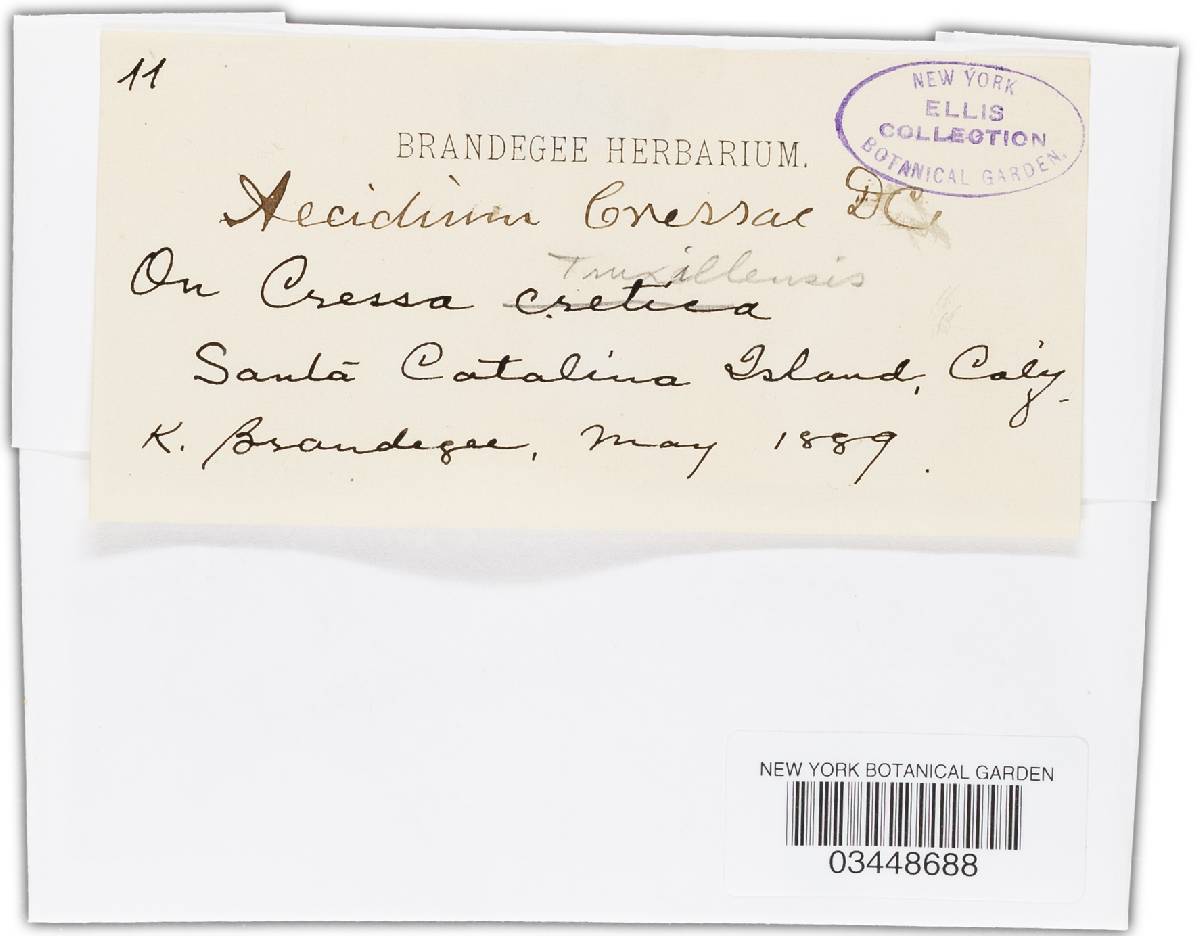 11
NEW YORK
ELLIS
COLLECTION
BOTANICAL GARDEN.
BRANDEGEE HERBARIUM.
Aecidium Cressae DC.
Truxillensis
On Cressa cretica
Santa Catalina Island, Calif.
K. Brandegee, May 1889.
NEW YORK BOTANICAL GARDEN
03448688